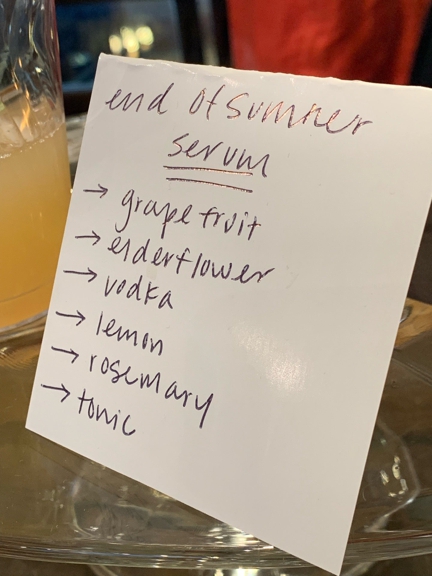 end of summer
serum
→ grapefruit
→ elderflower
→ vodka
→ lemon
→ rosemary
→ tonic